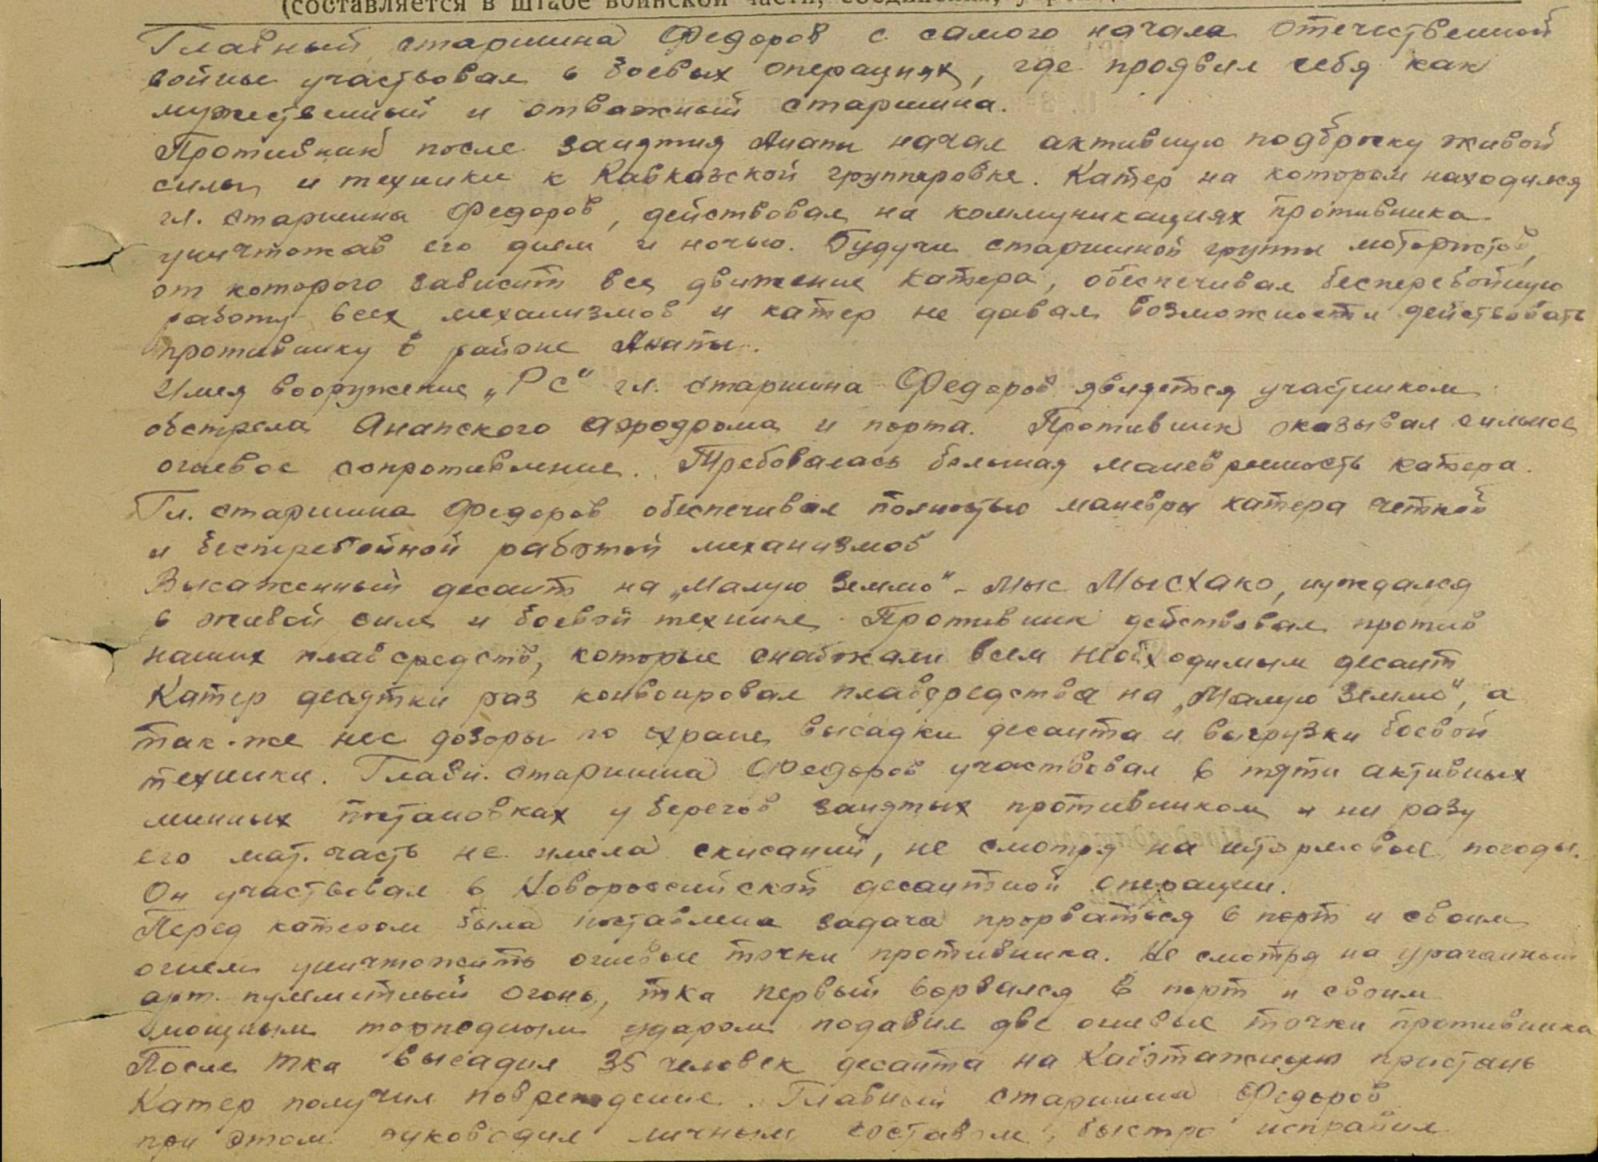 (составляется в штабе воинской части, соединения,
Главный старшина Федоров с самого начала Отечественной
войны участвовал в боевых операциях, где проявил себя как
мужественный и отважный старшина.
Противник после занятия Анапы начал активную подброску живой
силы и техники к Кавказской группировке. Катер на котором находился
гл. старшина Федоров, действовал на коммуникациях противника
уничтожав его днем и ночью. Будучи старшиной группы мотористов,
от которого зависит все движение катера, обеспечивал бесперебойную
работу всех механизмов и катер не давал возможности действовать
противнику в районе Анапы.
Имея вооружение „РС“ гл. старшина Федоров является участником
обстрела Анапского аэродрома и порта. Противник оказывал сильное
огневое сопротивление. Требовалась большая маневренность катера.
Гл. старшина Федоров обеспечивал полностью маневры катера четкой
и бесперебойной работой механизмов
Высаженный десант на „Малую Землю“ - мыс Мысхако, нуждался
в живой силе и боевой технике. Противник действовал против
наших плавсредств, которые снабжали всем необходимым десант
Катер десятки раз конвоировал плавсредства на „Малую Землю“, а
так-же нес дозоры по охране высадки десанта и выгрузки боевой
техники. Главн. старшина Федоров участвовал в пяти активных
минных постановках у берегов занятых противником и ни разу
его мат. часть не имела скисаний, не смотря на штормовые погоды.
Он участвовал в Новороссийской десантной операции.
Перед катером была поставлена задача прорваться в порт и своим
огнем уничтожить огневые точки противника. Не смотря на ураганный
арт. пулеметный огонь, тка первый ворвался в порт и своим
мощным торпедным ударом подавил две огневые точки противника
После тка высадил 35 человек десанта на Каботажную пристань
Катер получил повреждение. Главный старшина Федоров
при этом руководил личным составом, быстро исправил